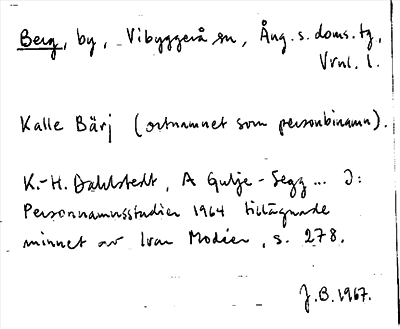 Berg, by, Vibyggerå sn, Ång. s. doms. tg,
Vrnl. l.
Kalle Bärj (ortnamnet som personbinamn).
K.-H. Dahlstedt, A Gubje-Segg... I:
Personnamnsstudier 1964 tillägnade
minnet av Ivar Modéer, s. 278.
J.B. 1967.